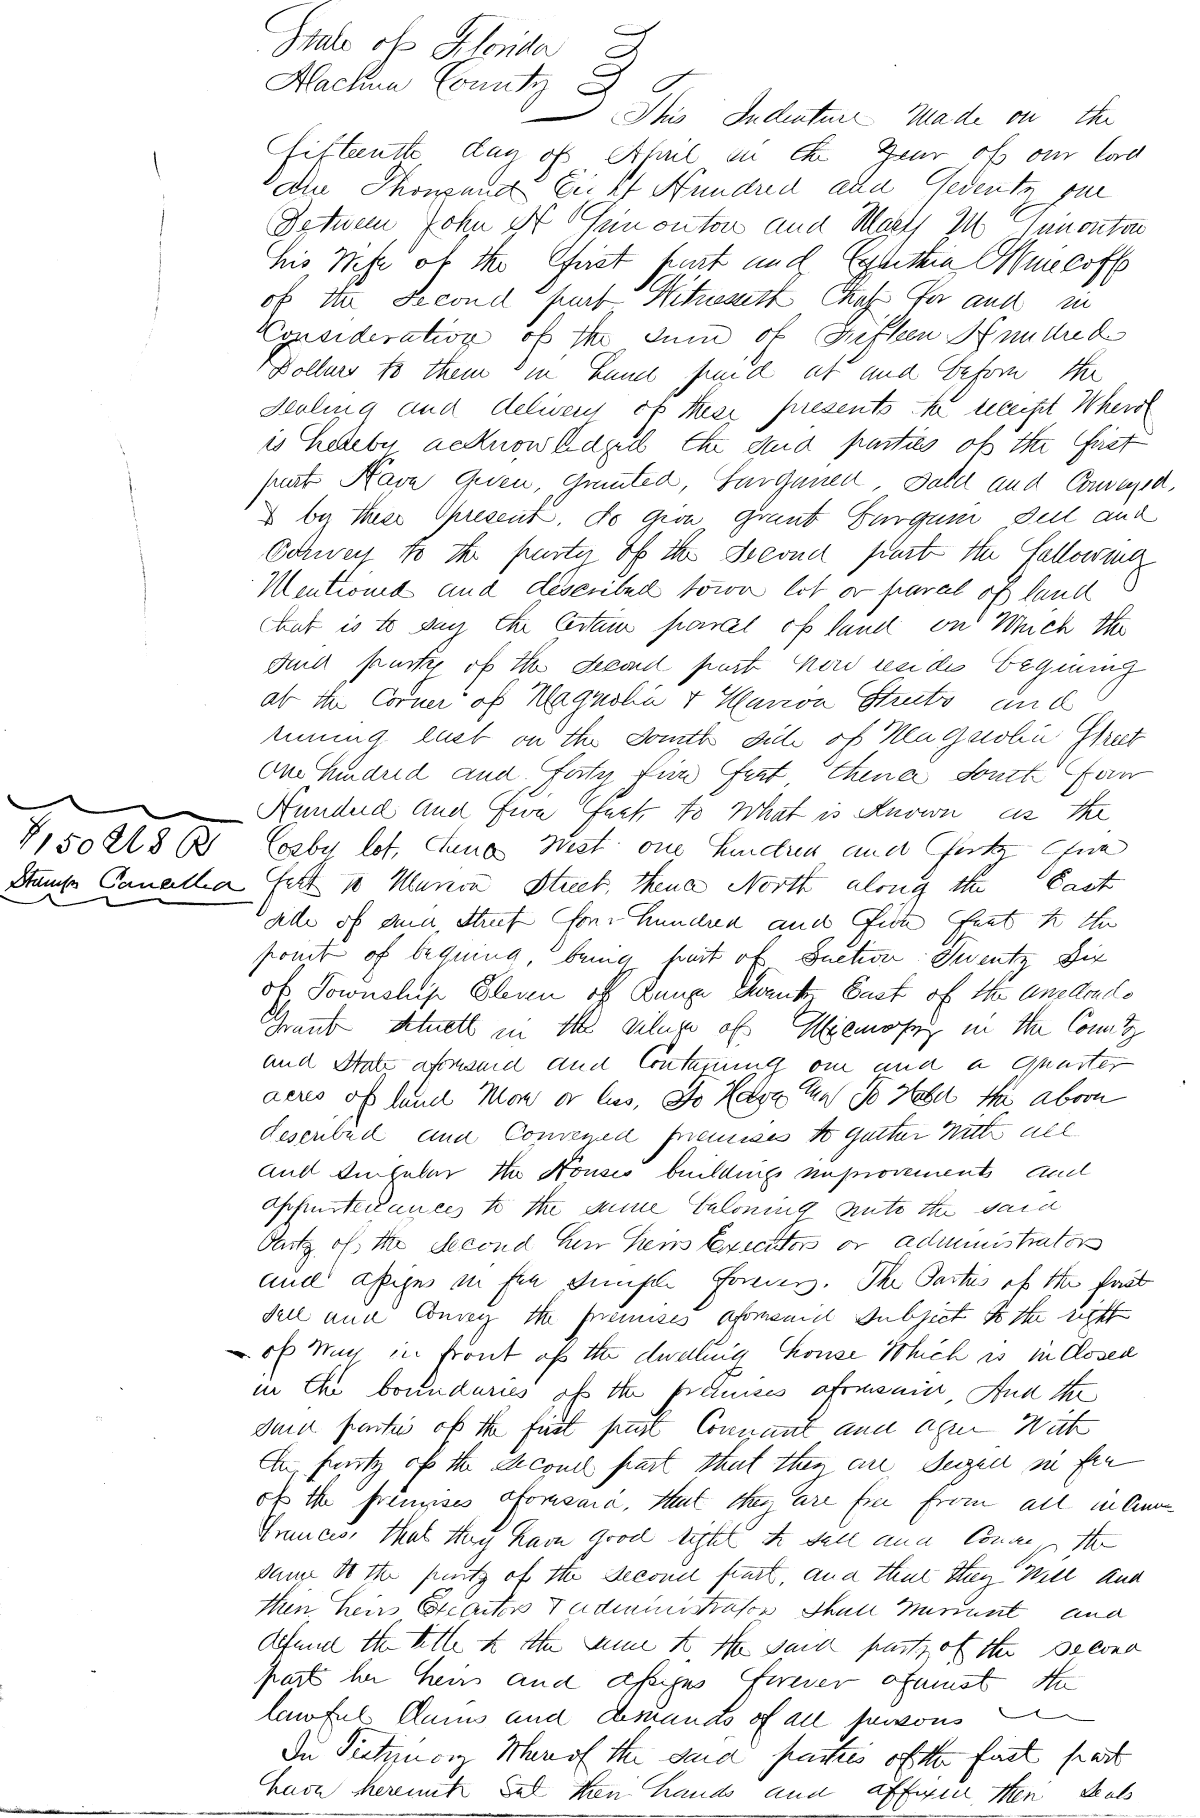 State of Florida
Alachua County
This Indenture Made on the
fifteenth day of April in the Year of our lord
One Thousand Eight Hundred and Seventy one
Between John N Simonton and Mary M Simonton
his Wife of the first part and Cynthia Winecoff
of the Second part Witnesseth that for and in
Consideration of the sum of Fifteen Hundred
Dollars to them in hand paid at and before the
sealing and delivery of these presents the receipt Wherof
is hereby acknowledged the said parties of the first
part Have given, granted, bargained, sold and Conveyed,
& by these present, do give grant bargain sell and
Convey to the party of the second part the following
Mentioned and described town lot or parcel of land
that is to say the Certain parcel of land on Which the
said party of the second part now resides begining
at the Corner of Magnolia & Marion Streets and
runing east on the south side of Magnolia Street
one hundred and forty five feet, thence south four
Hundred and five feet, to What is Known as the
Cosby lot, thence West one hundred and forty five
$150 U S R
Stamps Cancelled
feet to Marion Street, thence North along the East
side of said Street four hundred and five feet to the
point of begining, being part of Section Twenty Six
of Township Eleven of Range Twenty East of the
Grant in the village of Micanopy in the County
and State aforesaid and Containing one and a quarter
acres of land More or less, To Have And To Hold the above
described and Conveyed premises to gather With all
and singular the Houses buildings improvements and
appurtenances to the same beloning unto the said
Party of the second her heirs Executors or administrators
and assigns in fee simple forever. The Parties of the first
sell and Convey the premises aforesaid subject to the right
of Way in front of the dwelling house Which is inclosed
in the boundaries of the premises aforesaid, And the
said parties of the first part Covenant and agree With
the party of the second part that they are Seized in fee
of the premises aforesaid, that they are free from all incum-
brances, that they have good right to sell and Convey the
same to the party of the second part, and that they Will and
their heirs Executors & administrators shall Warrant and
defend the title to the same to the said party of the second
part her heirs and assigns forever against the
lawful Claims and demands of all persons
In Testimony Whereof the said parties of the first part
have hereunto Set their hands and affixed their seals